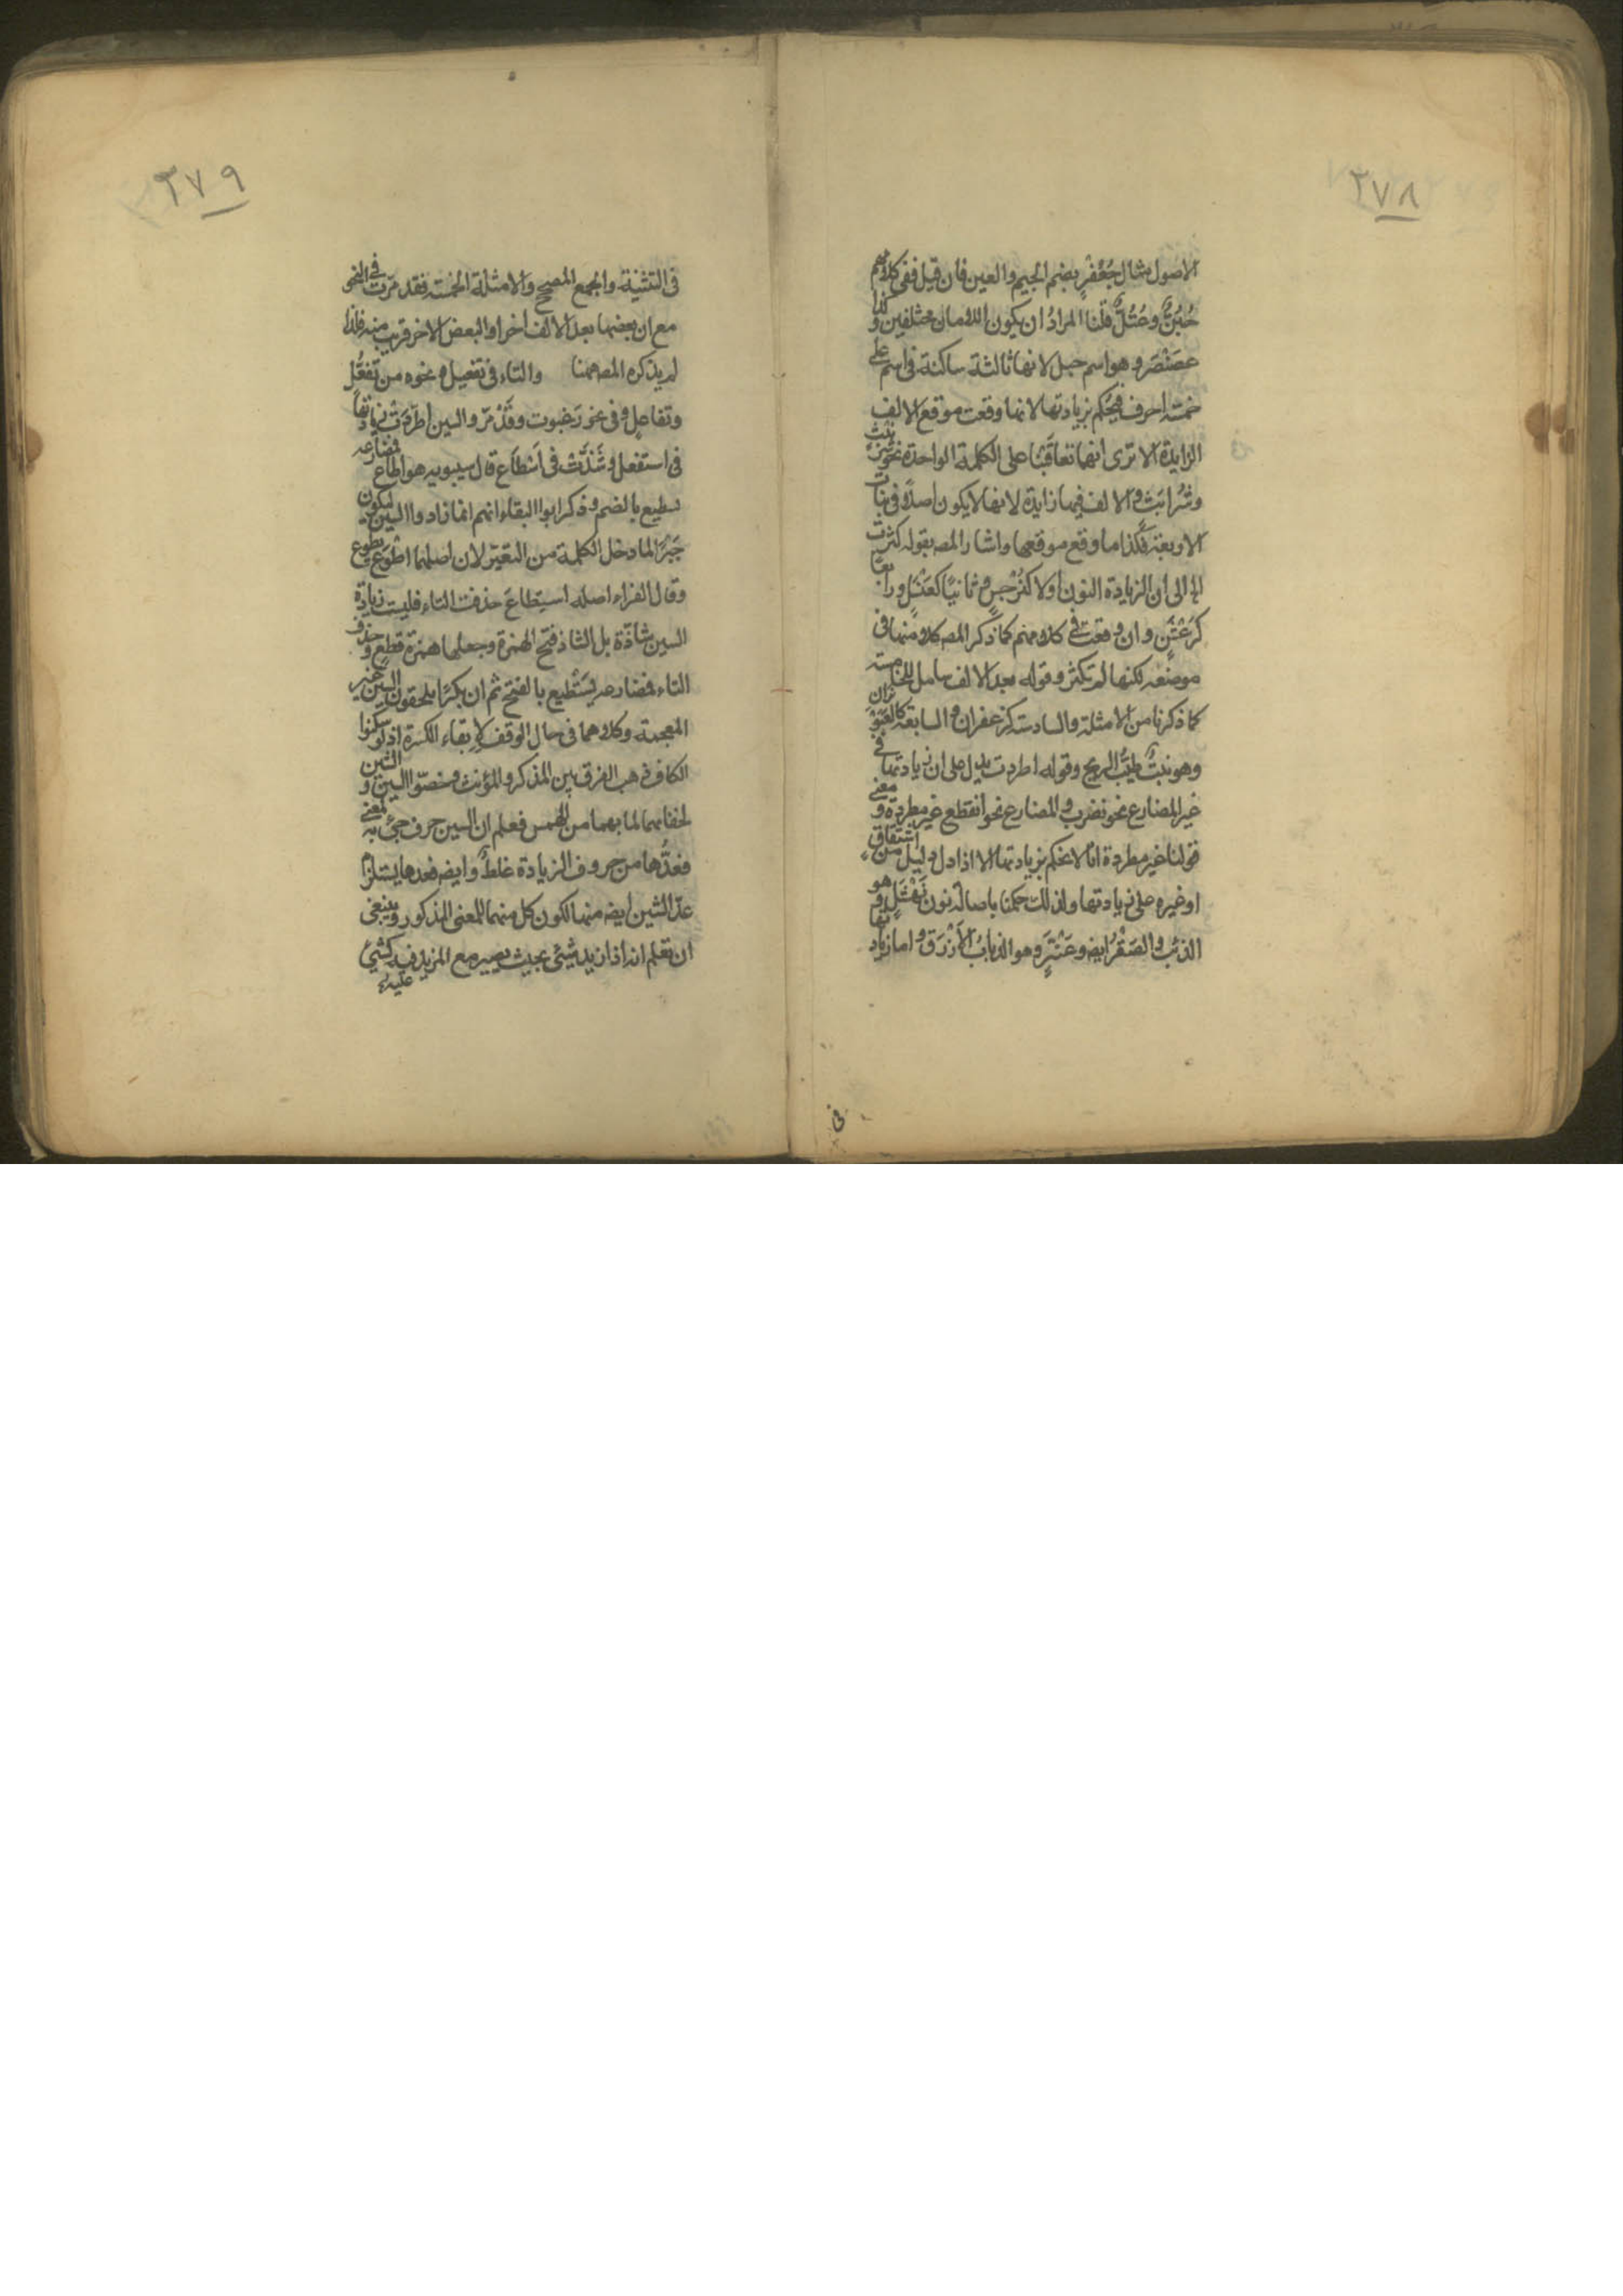 ٢٧٨
الاصول مثال جُعْفُرٍ بضم الجيم والعين فان قيل ففى كلامهم
جُبُنٌّ وعُتُلٌّ قلنا المرادُ ان يكون اللامان مختلفين وكذا
عصَنْصَر وهو اسم جبل لانها ثالثة ساكنة فى اسم على
خمسة احرف فيحكم بزيادتها لانها وقعت موقع الالف
الزايدة الا ترى انهما تعاقَبَتا على الكلمة الواحدة نحو شَرَنْبَثٍ
وشُرابَثٍ والالف فيها زايدة لانها لا يكون اصلاً فى بنات
الاربعة فكذا ما وقع موقعها واشار المصـ بقوله كثرت
الخ الى ان الزيادة النون اولا كنَرْجسٍ وثانيًا كعَنْسَلٍ ورابعًا
كرَعْشَنٍ وان وقعت فى كلامهم كما ذكر المصـ كلا منها فى
موضعه لكنها لم تكثر وقوله بعد الالف شامل للخامسة
كما ذكرنا من الامثلة والسادسة كزعفران والسابعة كالعَبَوْثران
وهو نبتٌ طيّبُ الريح وقوله اطردت يدل على ان زيادتها فى
غير المضارع نحو نضرب والمضارع نحو انقطع غير مطردة ومعنى
قولنا غير مطردة انا لا نحكم بزيادتها الا اذا دل دليل من اشتقاقٍ
او غيره على زيادتها ولذلك حكمنا باصالة نون نَهْشَلٍ وهو
الذئب والصَقْرُ ايضـ وعَنْتَرٍ وهو الذبابُ الأزْرَق واما زيادتها
فى
٢٧٩
فى التثنية والجمع المصحح والامثلة الخمسة فقد مرّت فى النحو
مع ان بعضها بعد الالف اخرا والبعض الاخر قريب منه فلذا
لم يذكره المصـ ههنا والتاء فى تفعيل ونحوه من تفعُّل
وتفاعلٍ وفى نحو رَغَبوت وقَدْ مَرّ والسين اطّرَدَتْ زيادتها
فى استفعل وشَذَّتْ فى اَسْطاَع قال سيبويه هو اطاع فمضارعه
يسطيع بالضم وذكر ابوا البقاء انهم انما زادوا السين ليكون
جَبْرًا لما دخل الكلمة من التغيّر لان اصلها اطْوَعَ يطوع
وقال الفراء اصله استطاعَ حذفت التاء فليست زيادة
السين شاذّة بل الشاذ فتح الهمزة وجعلها همزة قطع وحذف
التاء فمضارعه يَسْطيع بالفتح ثم ان بكرًا يلحقون السين غير
المعجمة وكلاهما فى حال الوقف لابقاء الكسرة اذ لو سكّنوا
الكاف ذهب الفرق بين المذكر والمؤنث وخصّوا السين والشين
لخفائهما لما بهما من الهمس فعلم ان السين حرف جئ به لمعنى
فعدُّها من حروف الزيادة غلطٌ وايضـ فعدها يستلزم
عدّ الشين ايضـ منها لكون كل منهما للمعنى المذكور وينبغى
ان تعلم انه اذا زيد شيئى بحيث يصير مع المزيد فيه كشيئ